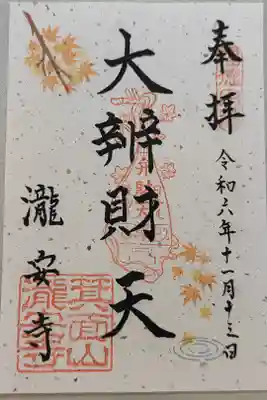 奉拝
令和六年十一月十三日
大辨財天
瀧安寺
箕面山
瀧安寺